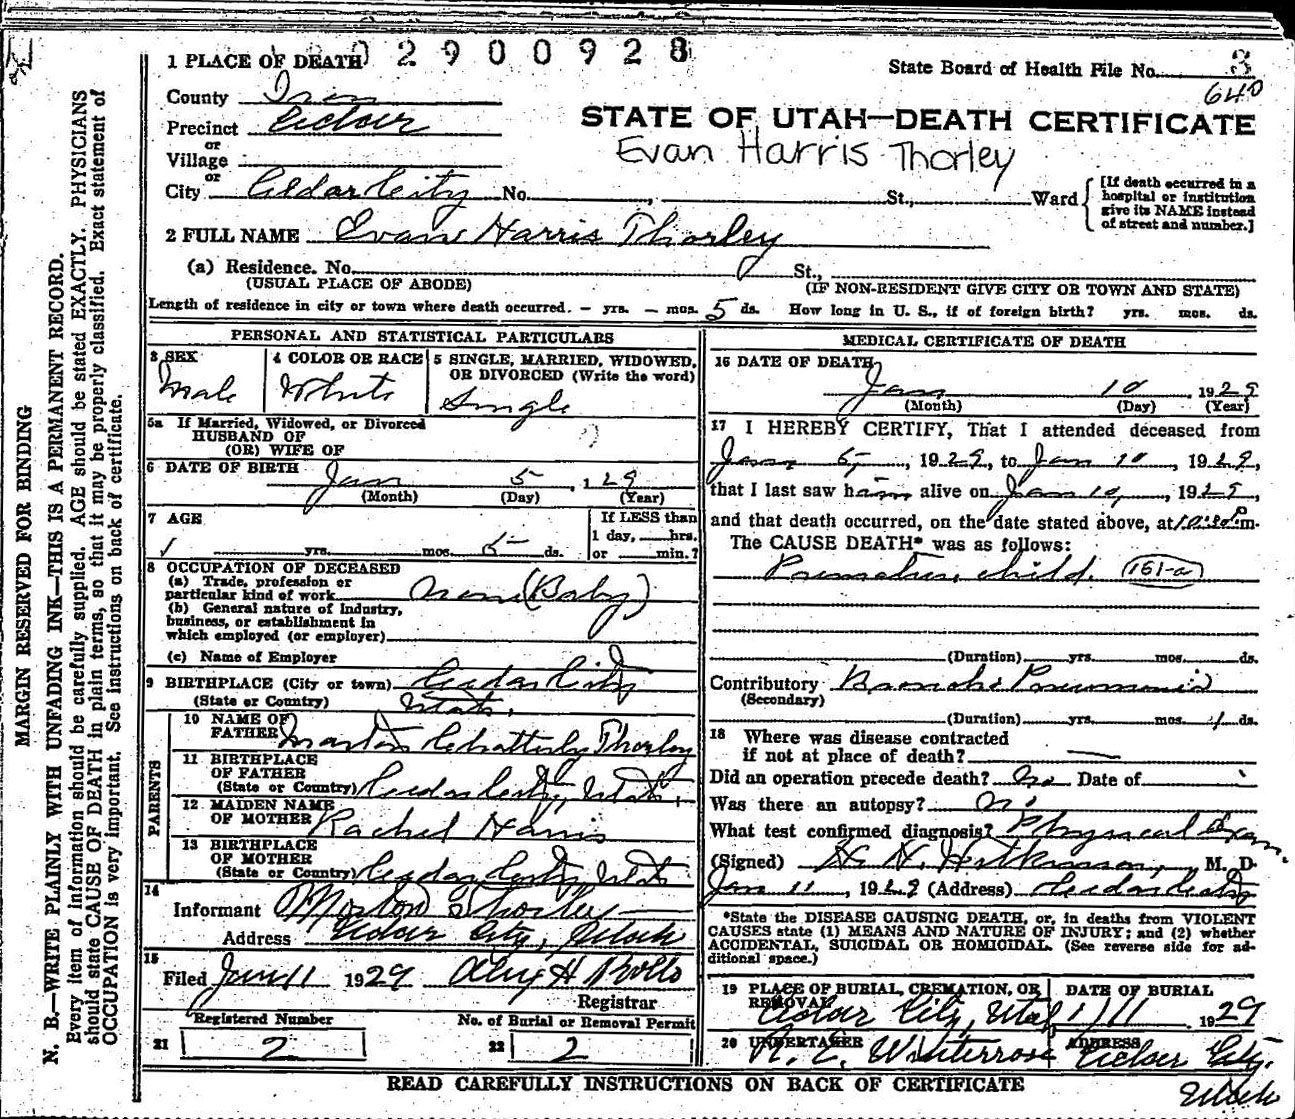 02900928
1 PLACE OF DEATH
State Board of Health File No. 3
640
County Iron
Precinct Cedar
or
Village
or
City Cedar City No. , St., Ward
[If death occurred in a
hospital or institution
give its NAME instead
of street and number.]
STATE OF UTAH—DEATH CERTIFICATE
Evan Harris Thorley
2 FULL NAME Evan Harris Thorley
(a) Residence. No. St.,
(USUAL PLACE OF ABODE) (IF NON-RESIDENT GIVE CITY OR TOWN AND STATE)
Length of residence in city or town where death occurred. – yrs. – mos. 5 ds. How long in U. S., if of foreign birth? yrs. mos. ds.
PERSONAL AND STATISTICAL PARTICULARS
3 SEX
Male
4 COLOR OR RACE
White
5 SINGLE, MARRIED, WIDOWED,
OR DIVORCED (Write the word)
Single
5a If Married, Widowed, or Divorced
HUSBAND OF
(OR) WIFE OF
6 DATE OF BIRTH Jan 5, 129
(Month) (Day) (Year)
7 AGE
yrs. mos. 5 ds.
If LESS than
1 day, hrs.
or min.?
8 OCCUPATION OF DECEASED
(a) Trade, profession or
particular kind of work None (Baby)
(b) General nature of Industry,
business, or establishment in
which employed (or employer)
(c) Name of Employer
9 BIRTHPLACE (City or town) Cedar City
(State or Country) Utah.
PARENTS
10 NAME OF
FATHER Morton Chatterley Thorley
11 BIRTHPLACE
OF FATHER
(State or Country) Cedar City, Utah.
12 MAIDEN NAME
OF MOTHER Rachel Harris
13 BIRTHPLACE
OF MOTHER
(State or Country) Cedar City, Utah
14
Informant Morton Thorley
Address Cedar City, Utah
15
Filed Jan 11 1929
Registrar
Registered Number
21 2
No. of Burial or Removal Permit
22 2
MEDICAL CERTIFICATE OF DEATH
16 DATE OF DEATH
Jan 10, 1929
(Month) (Day) (Year)
17 I HEREBY CERTIFY, That I attended deceased from
Jan 5, 1929, to Jan 10, 1929,
that I last saw him alive on Jan 10, 1929,
and that death occurred, on the date stated above, at m.
The CAUSE DEATH* was as follows:
Premature child. (161-a)
(Duration) yrs. mos. ds.
Contributory Broncho Pneumonia
(Secondary)
(Duration) yrs. mos. 1 ds.
18 Where was disease contracted
if not at place of death?
Did an operation precede death? No Date of
Was there an autopsy? No
What test confirmed diagnosis? Physical Exam.
(Signed) M. D.
Jan 11, 1929 (Address) Cedar City
*State the DISEASE CAUSING DEATH, or, in deaths from VIOLENT
CAUSES state (1) MEANS AND NATURE OF INJURY; and (2) whether
ACCIDENTAL, SUICIDAL OR HOMICIDAL. (See reverse side for ad-
ditional space.)
19 PLACE OF BURIAL, CREMATION, OR
REMOVAL
Cedar City, Utah
DATE OF BURIAL
1/11 1929
20 UNDERTAKER
Winterrose
ADDRESS
Cedar City.
Utah
READ CAREFULLY INSTRUCTIONS ON BACK OF CERTIFICATE
MARGIN RESERVED FOR BINDING
N. B.—WRITE PLAINLY WITH UNFADING INK—THIS IS A PERMANENT RECORD.
Every item of information should be carefully supplied. AGE should be stated EXACTLY. PHYSICIANS
should state CAUSE OF DEATH in plain terms, so that it may be properly classified. Exact statement of
OCCUPATION is very important. See instructions on back of certificate.